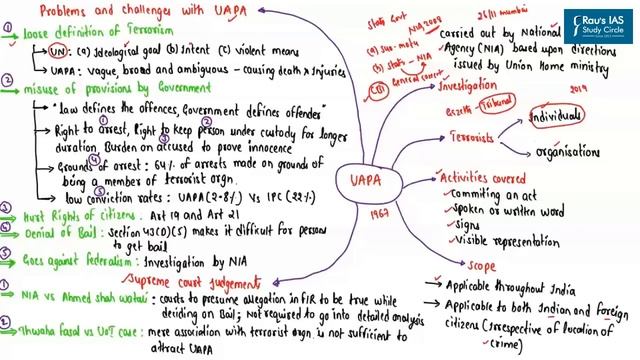 Problems and challenges with UAPA
① loose definition of Terrorism
UN: (a) Ideological goal (b) Intent (c) violent means
UAPA: Vague, broad and ambiguous - causing death & Injuries
② misuse of provisions by Government
"law defines the offences, Government defines offender"
① ②
Right to arrest, Right to keep person under custody for longer
③
duration, Burden on accused to prove innocence
④
Grounds of arrest: 64% of arrests made on grounds of
being a member of terrorist orgn.
⑤
low conviction rates: UAPA (2.8%) Vs IPC (22%)
③ Hurt Rights of citizens: Art 19 and Art 21
④ Denial of Bail: section 43(D)(5) makes it difficult for person
to get bail
⑤ Goes against Federalism: Investigation by NIA
Supreme court Judgements
① NIA vs Ahmed shah watali: courts to presume allegation in FIR to be true while
deciding on Bail; Not required to go into detailed analysis
② Thwaha fasal vs UoI case: mere association with terrorist orgn. is not sufficient to
attract UAPA
UAPA
1967
Rau's IAS
Study Circle
26/11 mumbai
State Govt
NIA 2008
(a) Suo-motu
(b) State - NIA
CBI
General consent
carried out by National
Agency (NIA) based upon directions
issued by Union Home ministry
Investigation
2019
Tribunal
Individuals
Terrorists
organisations
Activities covered
Commiting an act
spoken or written word
signs
visible representation
scope
Applicable throughout India
Applicable to both Indian and foreign
citizens (Irrespective of location of
crime)